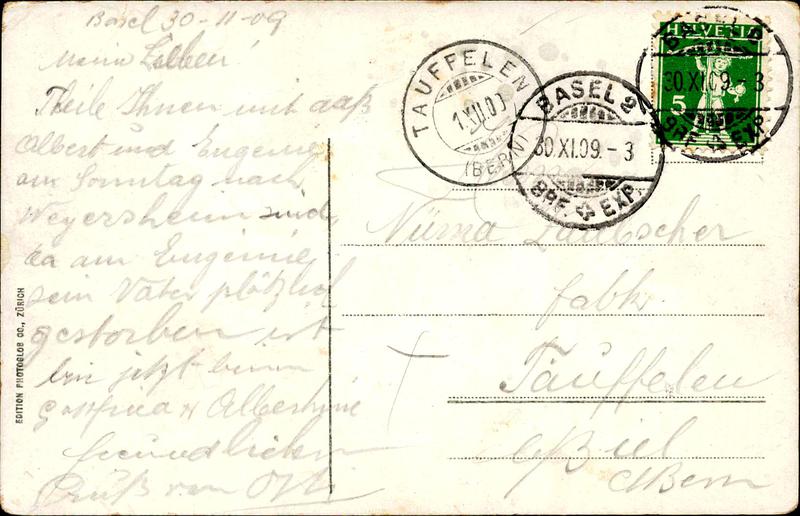 Basel 30-11-09
Meine Lieben!
Theile Ihnen mit daß
Albert und Eugenie
am Sonntag nach
Weyersheim sind
da am Eugenie
sein Vater plötzlich
gestorben ist
bin jetzt beim
Albertine
freundlichen
Gruß von
EDITION PHOTOGLOB CO., ZÜRICH
TÄUFFELEN
1.XII.09
(BERN)
BASEL 9
30.XI.09.-3
BRF. EXP.
HELVETIA
5
BASEL 9
30.XI.09.-3
BRF. EXP.
Numa Laubscher
fabk.
Täuffelen
b/Biel
Bern